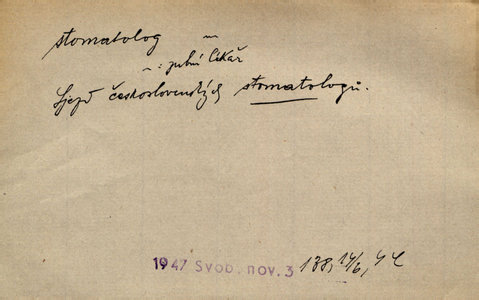 stomatolog
~: zubní lékař
Sjezd československých stomatologů.
1947 Svob. nov. 3 138, 14/6, 4